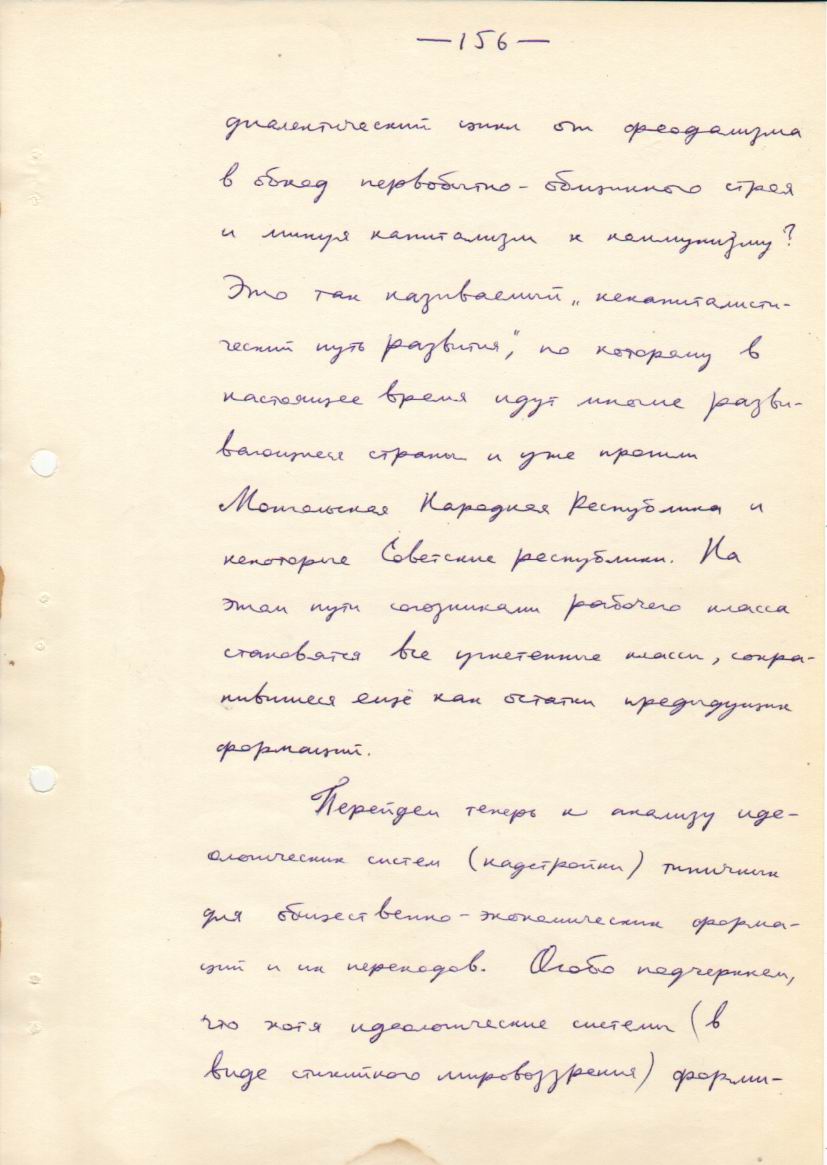 — 156 —
диалектический цикл от феодализма
в обход первобытно-общинного строя
и минуя капитализм к коммунизму?
Это так называемый „некапиталисти-
ческий путь развития“, по которому в
настоящее время идут многие разви-
вающиеся страны и уже прошли
Монгольская Народная Республика и
некоторые Советские республики. На
этом пути союзниками рабочего класса
становятся все угнетенные классы, сохра-
нившиеся ещё как остатки предыдущих
формаций.
Перейдем теперь к анализу иде-
ологических систем (надстройки) типичных
для общественно-экономических форма-
ций и их переходов. Особо подчеркнем,
что хотя идеологические системы (в
виде стихийного мировоззрения) форми-